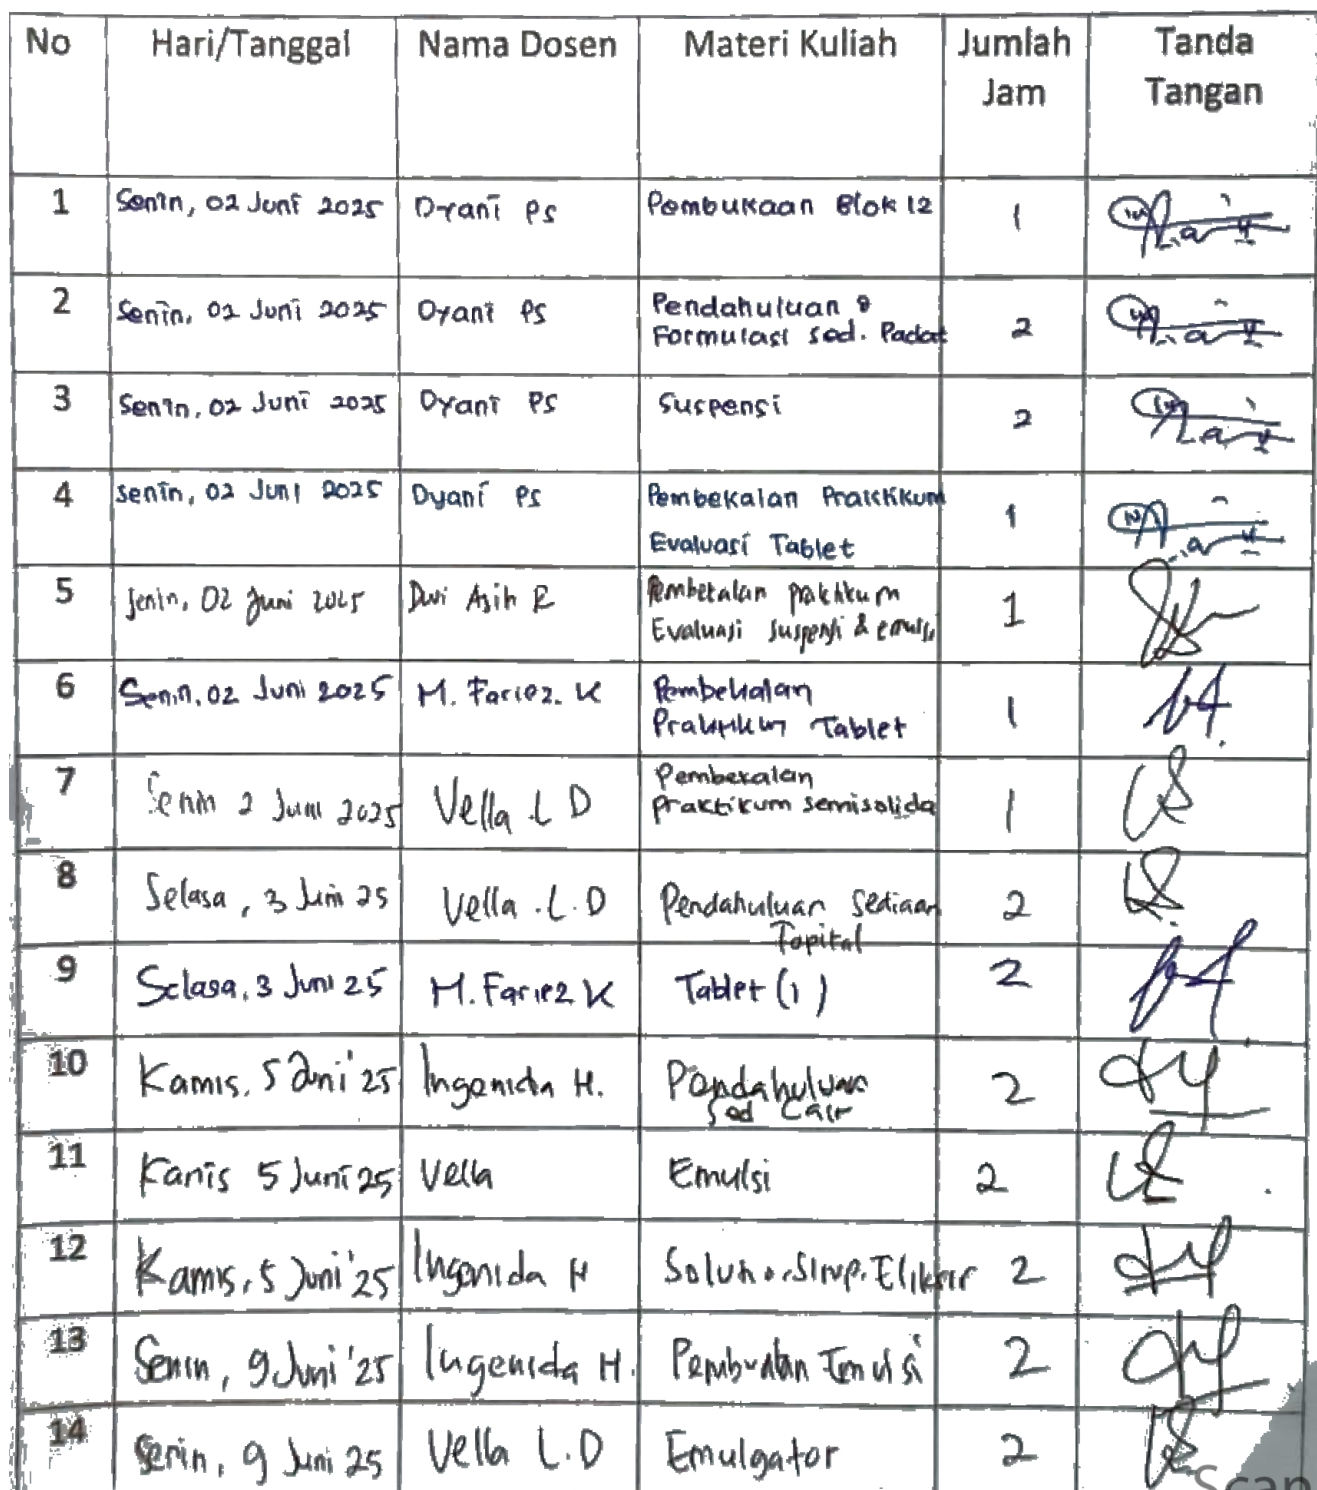 No Hari/Tanggal Nama Dosen Materi Kuliah Jumlah Jam Tanda Tangan
1 Senin, 02 Juni 2025 Dyani PS Pembukaan Blok 12 1
2 Senin, 02 Juni 2025 Dyani PS Pendahuluan & Formulasi Sed. Padat 2
3 Senin, 02 Juni 2025 Dyani PS Suspensi 2
4 Senin, 02 Juni 2025 Dyani PS Pembekalan Praktikum Evaluasi Tablet 1
5 Senin, 02 Juni 2025 Dwi Asih R Pembekalan praktikum Evaluasi suspensi & emulsi 1
6 Senin, 02 Juni 2025 M. Fariez. K Pembekalan Praktikum Tablet 1
7 Senin 2 Juni 2025 Vella . L D Pembekalan praktikum semisolida 1
8 Selasa, 3 Juni 25 Vella . L . D Pendahuluan Sediaan Topikal 2
9 Selasa, 3 Juni 25 M. Fariez K Tablet (1) 2
10 Kamis, 5 Juni '25 Ingenida H. Pendahuluan Sed Cair 2
11 Kamis 5 Juni 25 Vella Emulsi 2
12 Kamis, 5 Juni '25 Ingenida H Solutio, Sirup, Eliksir 2
13 Senin, 9 Juni '25 Ingenida H. Pembuatan Emulsi 2
14 Senin, 9 Juni 25 Vella L.D Emulgator 2